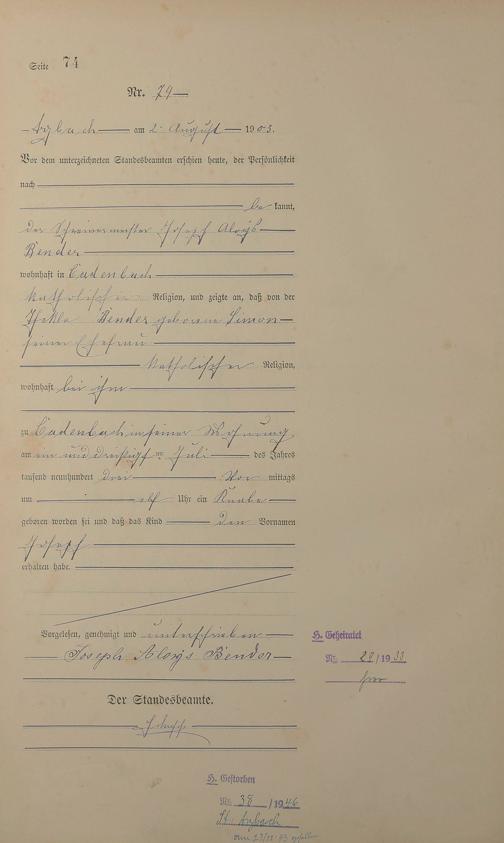 Seite 74
Nr. 79
Arzbach am 2. August 1903.
Vor dem unterzeichneten Standesbeamten erschien heute, der Persönlichkeit
nach
be kannt,
der Schreinermeister Joseph Aloys
Bender
wohnhaft in Cadenbach
katholischer Religion, und zeigte an, daß von der
Thekla Bender geborene Simon
seiner Ehefrau
katholischer Religion,
wohnhaft bei ihm
zu Cadenbach in seiner Wohnung
am ein und dreißigsten Juli des Jahres
tausend neunhundert drei Vor mittags
um elf Uhr ein Knabe
geboren worden sei und daß das Kind den Vornamen
Joseph
erhalten habe.
Vorgelesen, genehmigt und unterschrieben
Joseph Aloys Bender
Der Standesbeamte.
H. Geheiratet
Nr. 28/1933
H. Gestorben
Nr. 38/1946
St. Arzbach